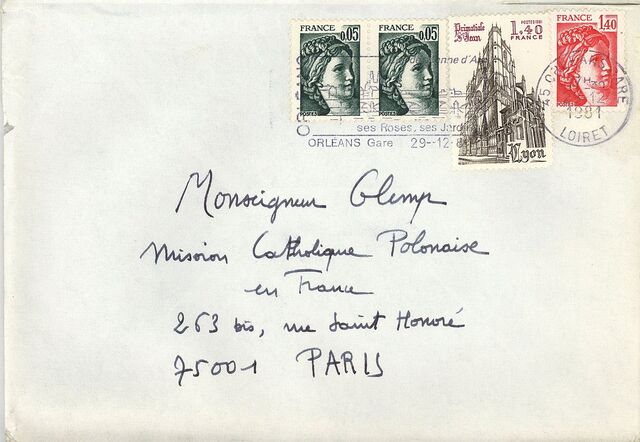 FRANCE 0.05
POSTES
FRANCE 0.05
POSTES
Primatiale St Jean
POSTES 1981
1.40
FRANCE
Lyon
FRANCE
1.40
POSTES
ses Roses, ses Jardins
ORLÉANS Gare 29-12-8
45 ORLEANS GARE
12
1981
LOIRET
Monseigneur Glemp
Mission Catholique Polonaise
en France
263 bis, rue Saint Honoré
75001 PARIS